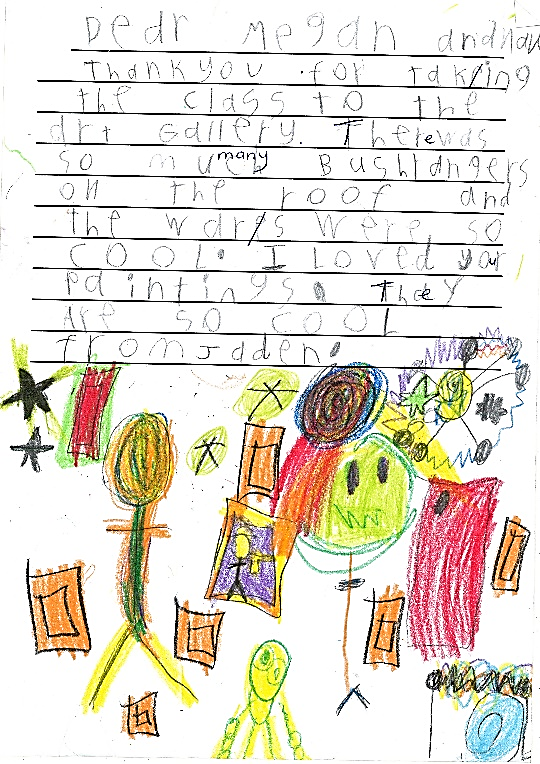 Dear Megan and
Thankyou for taking
the class to the
art gallery. Therewas
so many Bushrangers
on the roof and
the wor/s were so
COOL. I Loved your
paintings. They
Are SO COOL
From Jaden.